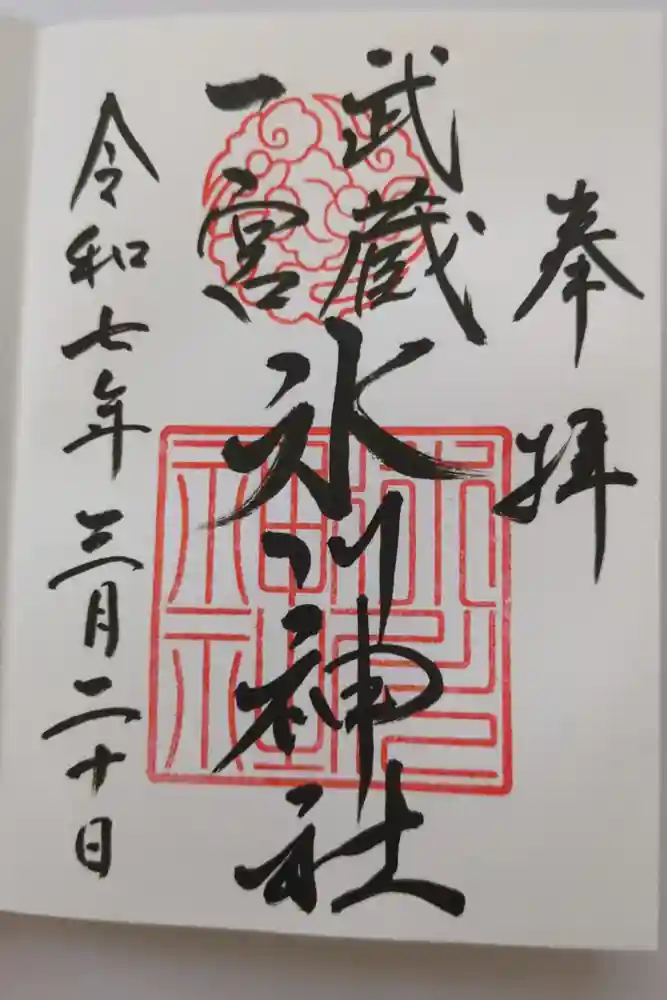 奉拝
武蔵
一宮
氷川神社
令和七年三月二十日
氷川神社